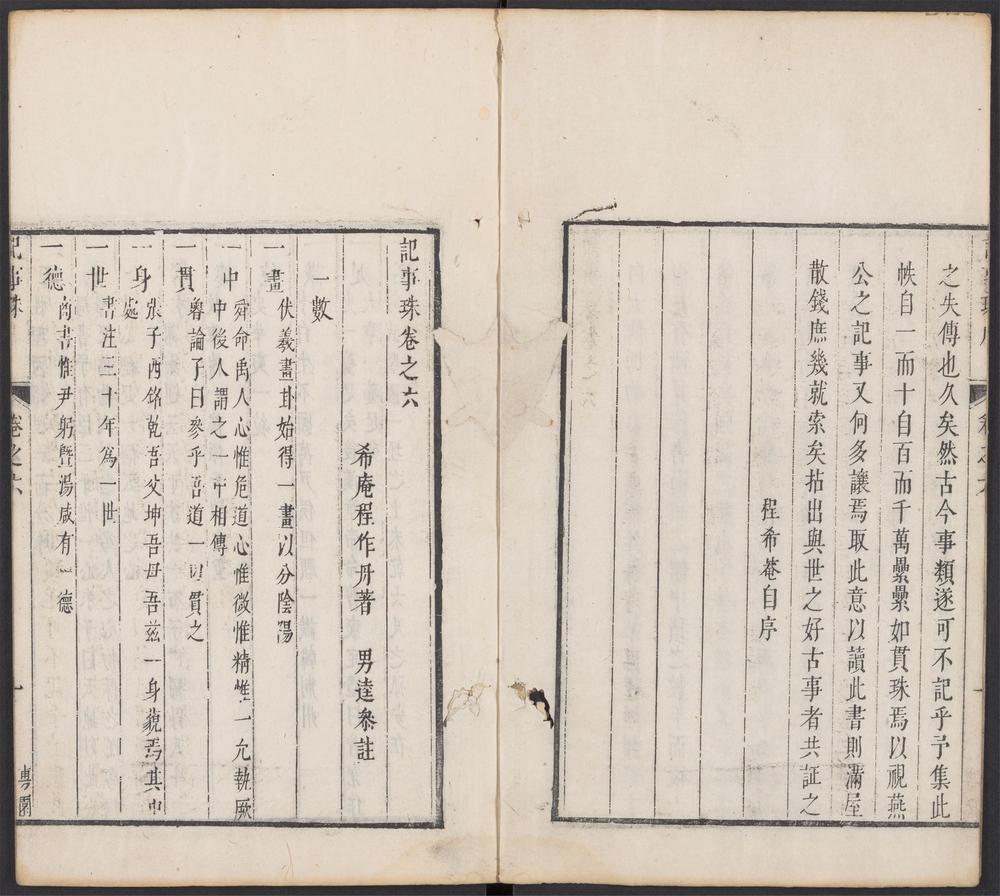 之失傳也久矣然古今事類遂可不記乎予集此
帙自一而十自百而千萬纍纍如貫珠焉以視燕
公之記事又何多讓焉取此意以讀此書則滿屋
散錢庶幾就索矣拈出與世之好古事者共証之
程希菴自序
記事珠卷之六
希庵程作舟著　男逵叅註
一數
一畫　伏羲畫卦始得一畫以分陰陽
一中　舜命禹人心惟危道心惟微惟精惟一允執厥
中後人謂之一中相傳
一貫　魯論子曰參乎吾道一以貫之
一身　張子西銘乾吾父坤吾母吾兹一身藐焉其中
處
一世　書注三十年爲一世
一德　商書惟尹躬曁湯咸有一德
記事珠　卷之六　一　粵園